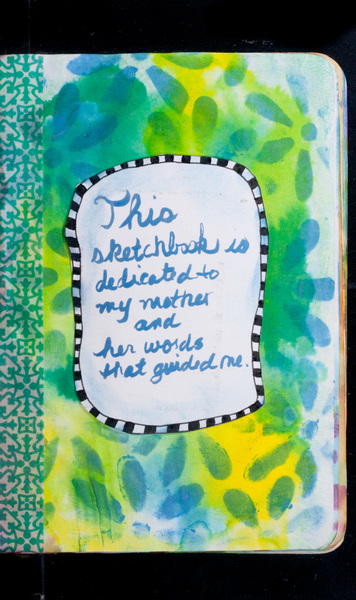 This
sketchbook is
dedicated to
my mother
and
her words
that guided me.